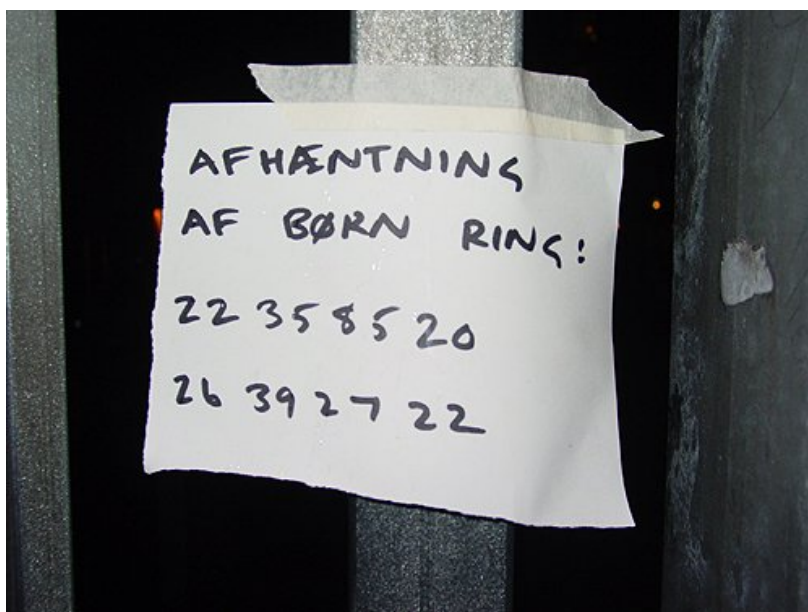 AFHÆNTNING
AF BØRN RING:
22 35 85 20
26 39 27 22